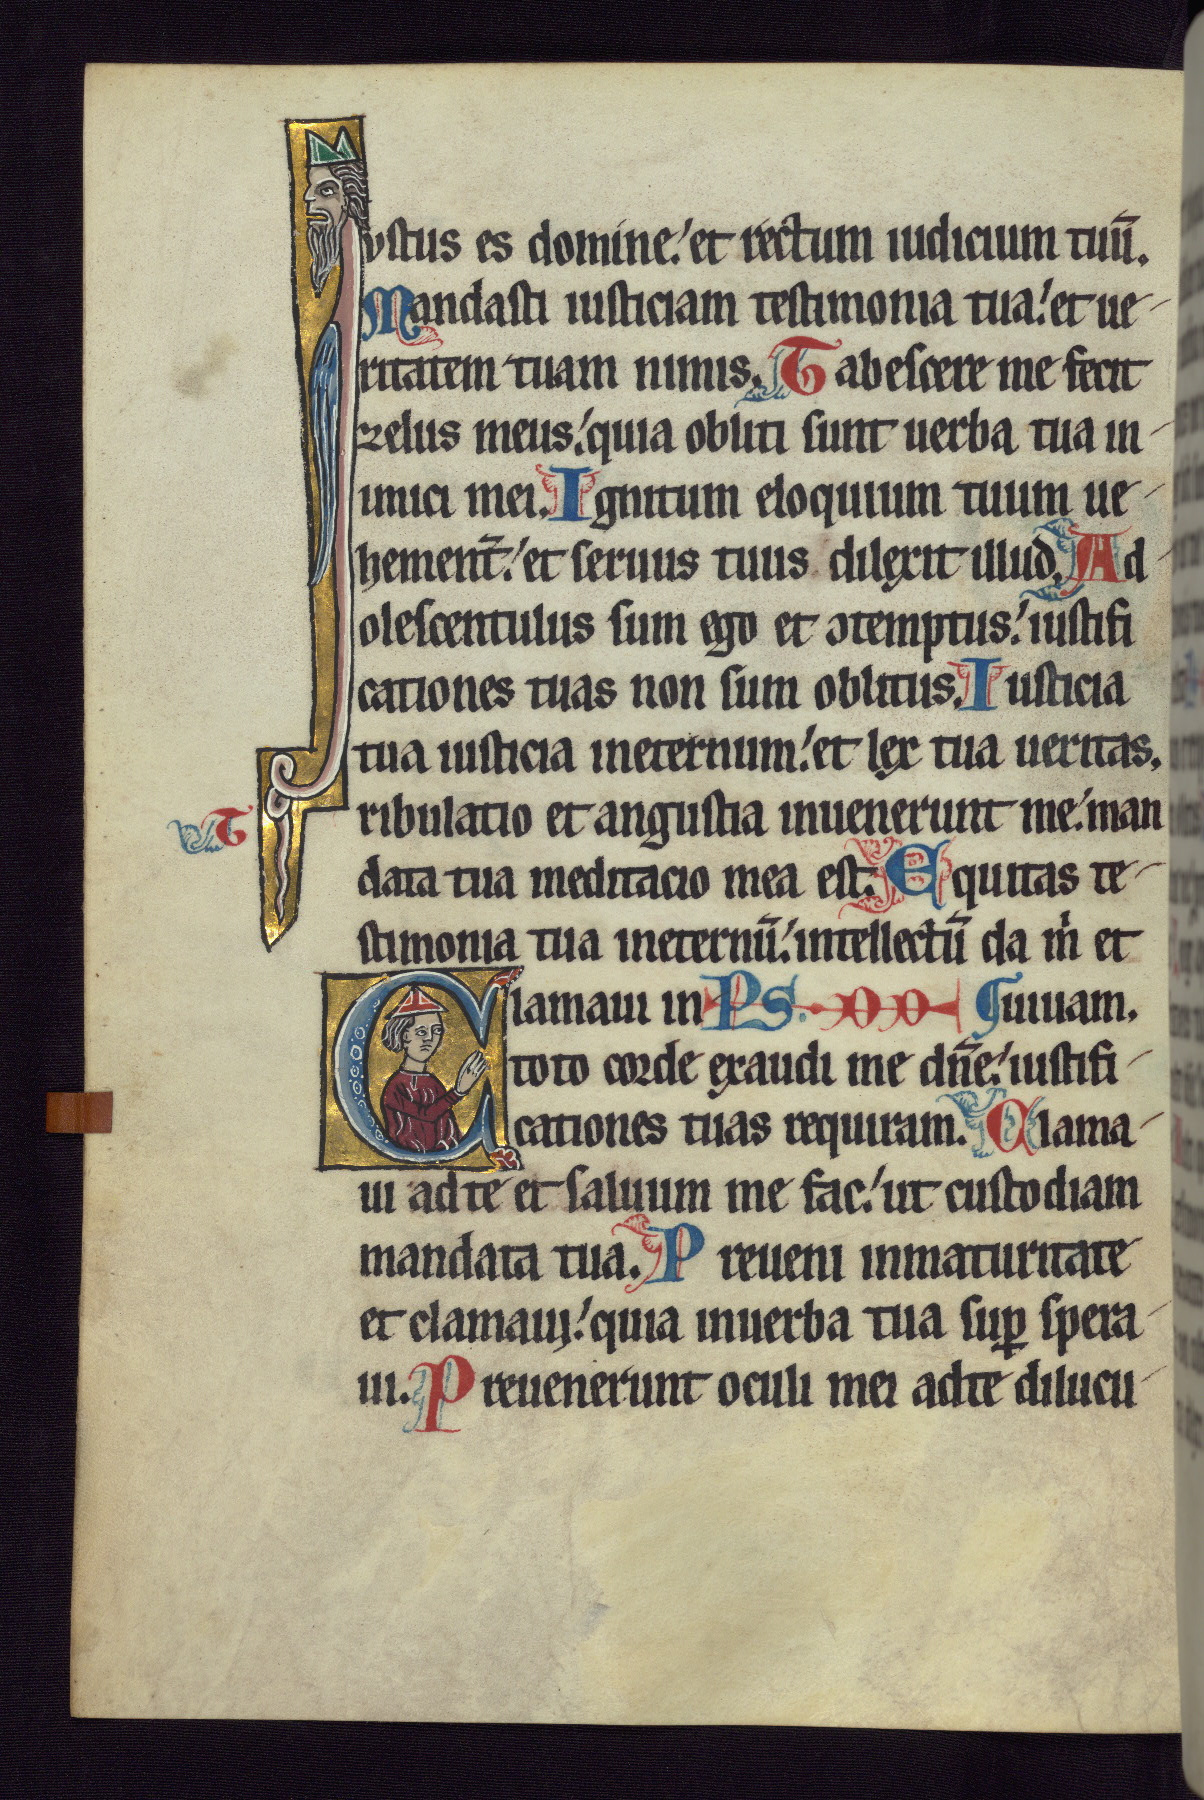 Iustus es domine: et rectum iudicium tuū.
Mandasti iusticiam testimonia tua: et ue-
ritatem tuam nimis. Tabescere me fecit
zelus meus: quia obliti sunt uerba tua in-
imici mei. Ignitum eloquium tuum ue-
hement̄: et seruus tuus dilexit illud. Ad-
olescentulus sum ego et ↄtemptus: iustifi
cationes tuas non sum oblitus. Iusticia
tua iusticia ineternum: et lex tua ueritas.
Tribulatio et angustia inuenerunt me: man
data tua meditacio mea est. Equitas te-
stimonia tua ineternū: intellectū da m̍ et
Clamaui in PS. ¶uiuam.
toto corde exaudi me dn̄e: iustifi-
cationes tuas requiram. Clama-
ui adte et saluum me fac: ut custodiam
mandata tua. Preueni inmaturitate
et clamaui: quia inuerba tua suꝑ spera-
ui. Preuenerunt oculi mei adte dilucu-